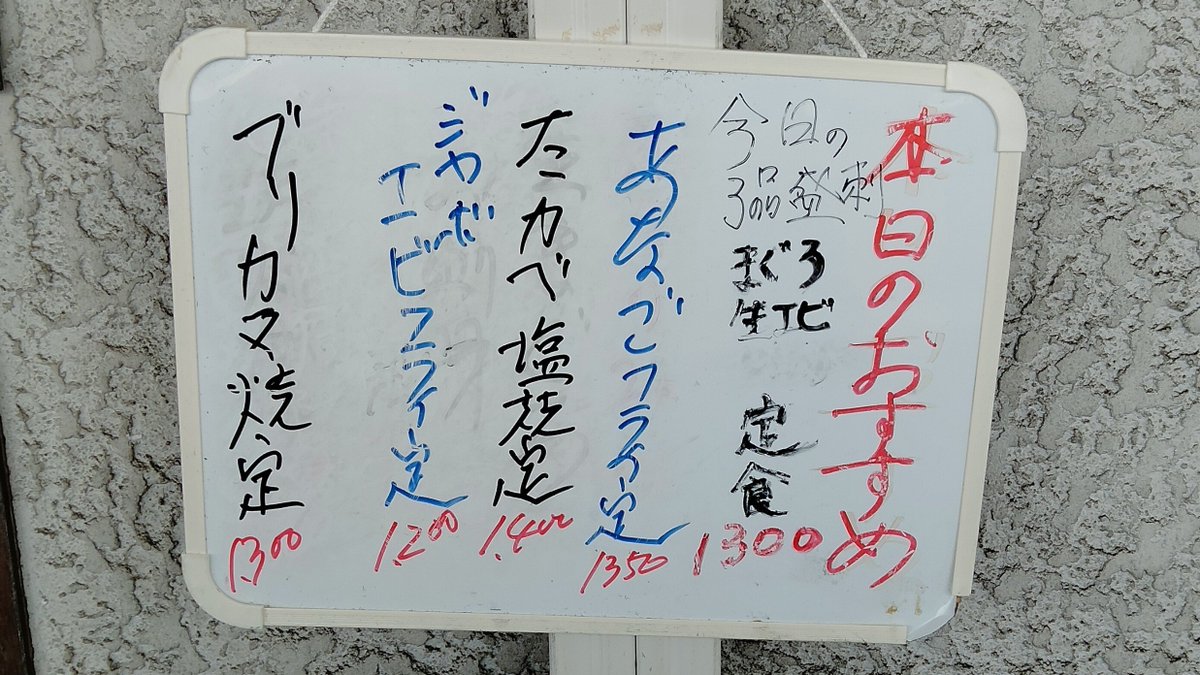 本日のおすすめ
今日の
3品盛刺
まぐろ
生エビ
定食
1300
あなごフライ定
1350
たカベ塩焼定
1.400
ジャボ
エービフライ定
1.200
ブリカマ焼定
1.300